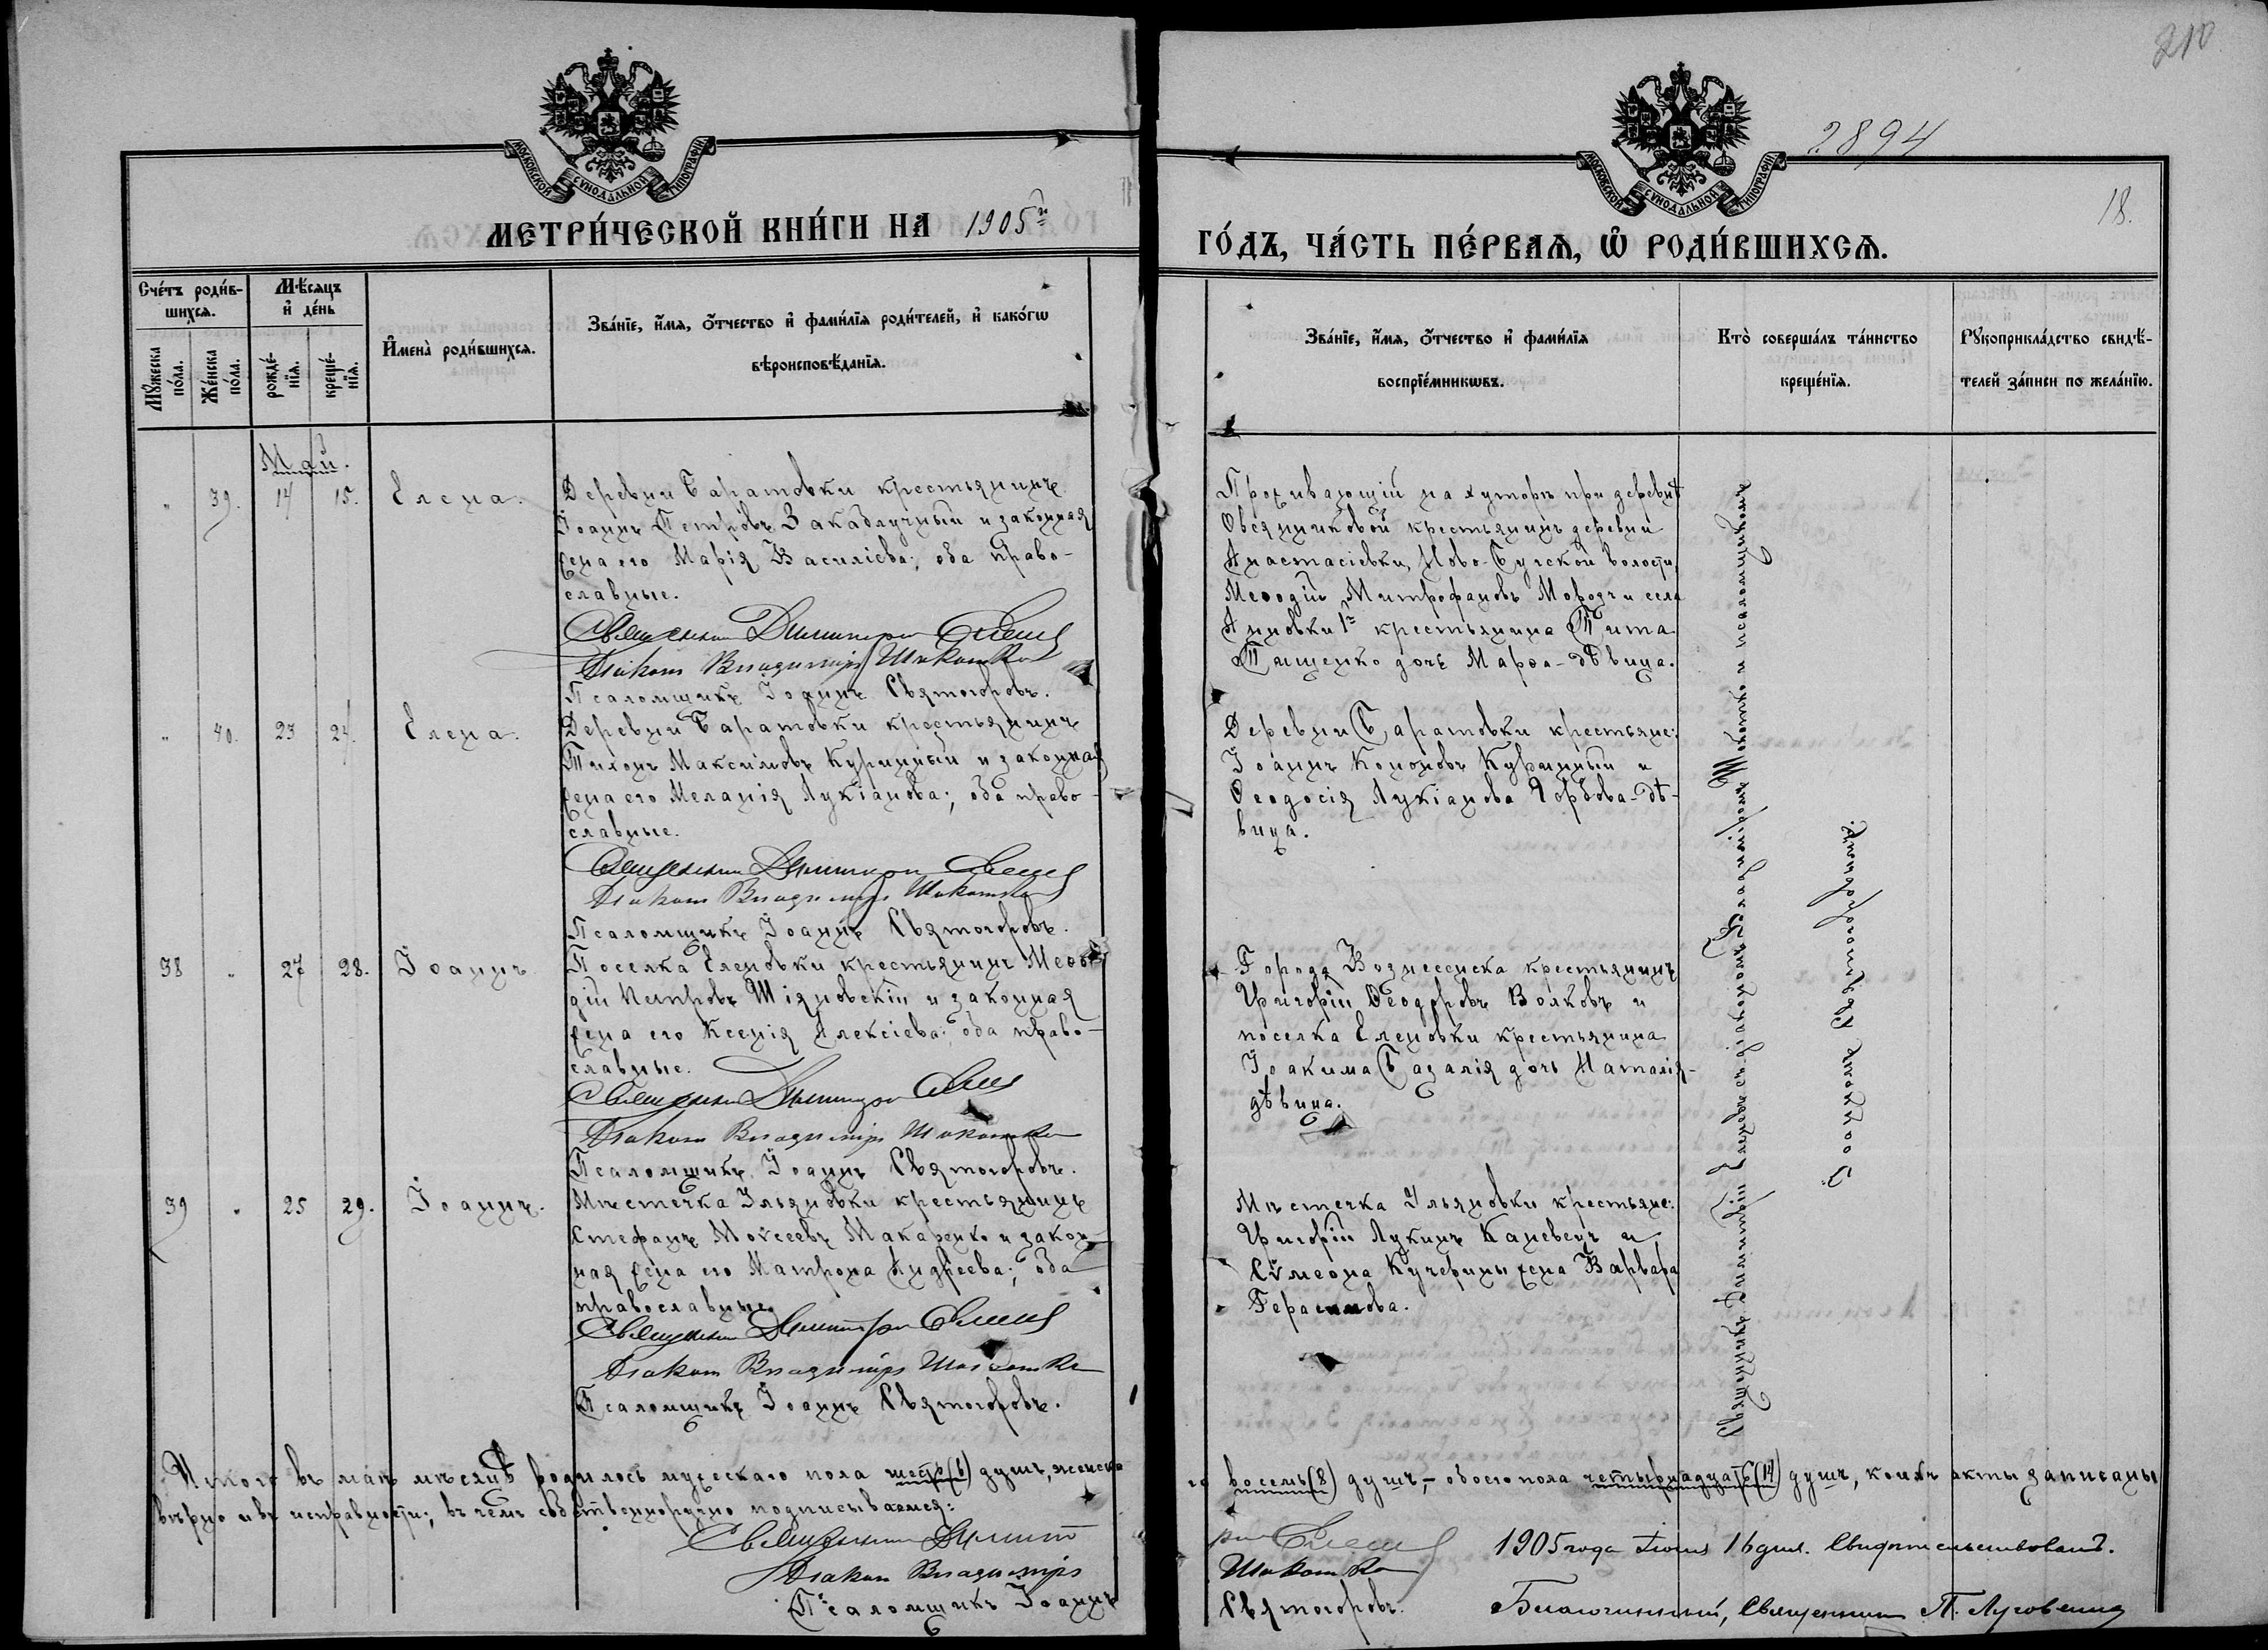 210
2894
18.
МОСКОВСКОЙ СѴНОДАЛЬНОЙ ТИПОГРАФІИ
МОСКОВСКОЙ СѴНОДАЛЬНОЙ ТИПОГРАФІИ
МЕТРИ́ЧЕСКОЙ КНИ́ГИ НА 1905й
ГО́ДЪ, ЧА́СТЬ ПЕ́РВАѦ, Ѡ РОДИ́ВШИХСѦ.
Сче́тъ роди́в-
шихсѧ.
Мѣ́сѧцъ
и҆ де́нь
Мꙋжеска
по́ла.
Же́нска
по́ла.
рожде́-
нїѧ.
креще́-
нїѧ.
И҆мена̀ роди́вшихсѧ.
Зва́нїе, и҆́мѧ, ѻ҆́тчество и҆ фами́лїѧ роди́телей, и҆ како́гѡ
вѣроисповѣ́данїѧ.
Зва́нїе, и҆́мѧ, ѻ҆́тчество и҆ фами́лїѧ
воспрїе́мникѡвъ.
Кто̀ соверша́лъ та́инство
креще́нїѧ.
Рꙋкоприкла́дство свидѣ́-
телей за́писи по жела́нїю.
Май.
" 39. 14 15. Елена.
Деревни Баратовки крестьянинъ
Іоаннъ Петровъ Закаблучный и законная
жена его Марія Василіева; оба право-
славные.
Священникъ Димитрій
Діаконъ Владиміръ
Псаломщикъ Іоаннъ Святогоровъ.
Проживающій на хуторѣ при деревнѣ
Овсянниковой крестьянинъ деревни
Анастасіевки, Ново-Бугской волости,
Меѳодій Митрофановъ Мороз и села
Анновки 1й крестьянина Тита
Пащенко дочь Марѳа - дѣвица.
" 40. 23 24. Елена.
Деревни Баратовки крестьянинъ
Тихонъ Максимовъ Куринный и законная
жена его Меланія Лукіанова; оба право-
славные.
Священникъ Димитрій
Діаконъ Владиміръ
Псаломщикъ Іоаннъ Святогоровъ.
Деревни Баратовки крестьяне:
Іоаннъ Кононовъ Куринный и
Ѳеодосія Лукіанова Горбова - дѣ-
вица.
38 " 27 28. Іоаннъ
Поселка Еленовки крестьянинъ Меѳо-
дій Петровъ Шіяновскій и законная
жена его Ксенія Алексіева; оба право-
славные.
Священникъ Димитрій
Діаконъ Владиміръ
Псаломщикъ Іоаннъ Святогоровъ.
Города Вознесенска крестьянинъ
Григорій Ѳеодоровъ Волковъ и
поселка Еленовки крестьянина
Іоакима дочь Наталія -
дѣвица.
39 " 25 29. Іоаннъ.
Мѣстечка Ульяновки крестьянинъ
Стефанъ Моѵсеевъ Макаренко и закон-
ная жена его Матрона Андреева; оба
православные.
Священникъ Димитрій
Діаконъ Владиміръ
Псаломщикъ Іоаннъ Святогоровъ.
Мѣстечка Ульяновки крестьяне:
Григорій Лукинъ Каневецъ и
Сѵмеона Кучерины жена Варвара
Герасимова.
Священникъ Димитрій съ діакономъ Владиміромъ и псаломщикомъ
Іоанномъ Святогоровымъ.
Итого въ маѣ мѣсяцѣ родилось мужескаго пола шесть (6) душъ, женска-
го восемь (8) душъ, - обоего пола четырнадцать (14) душъ, коихъ акты записаны
вѣрно и въ исправности; въ чемъ собственноручно подписываемся:
Священникъ Димит
рій
Діаконъ Владиміръ
Псаломщикъ Іоаннъ
Святогоровъ.
1905 года Іюня 16 дня. Свидѣтельствовалъ.
Благочинный, Священникъ П.